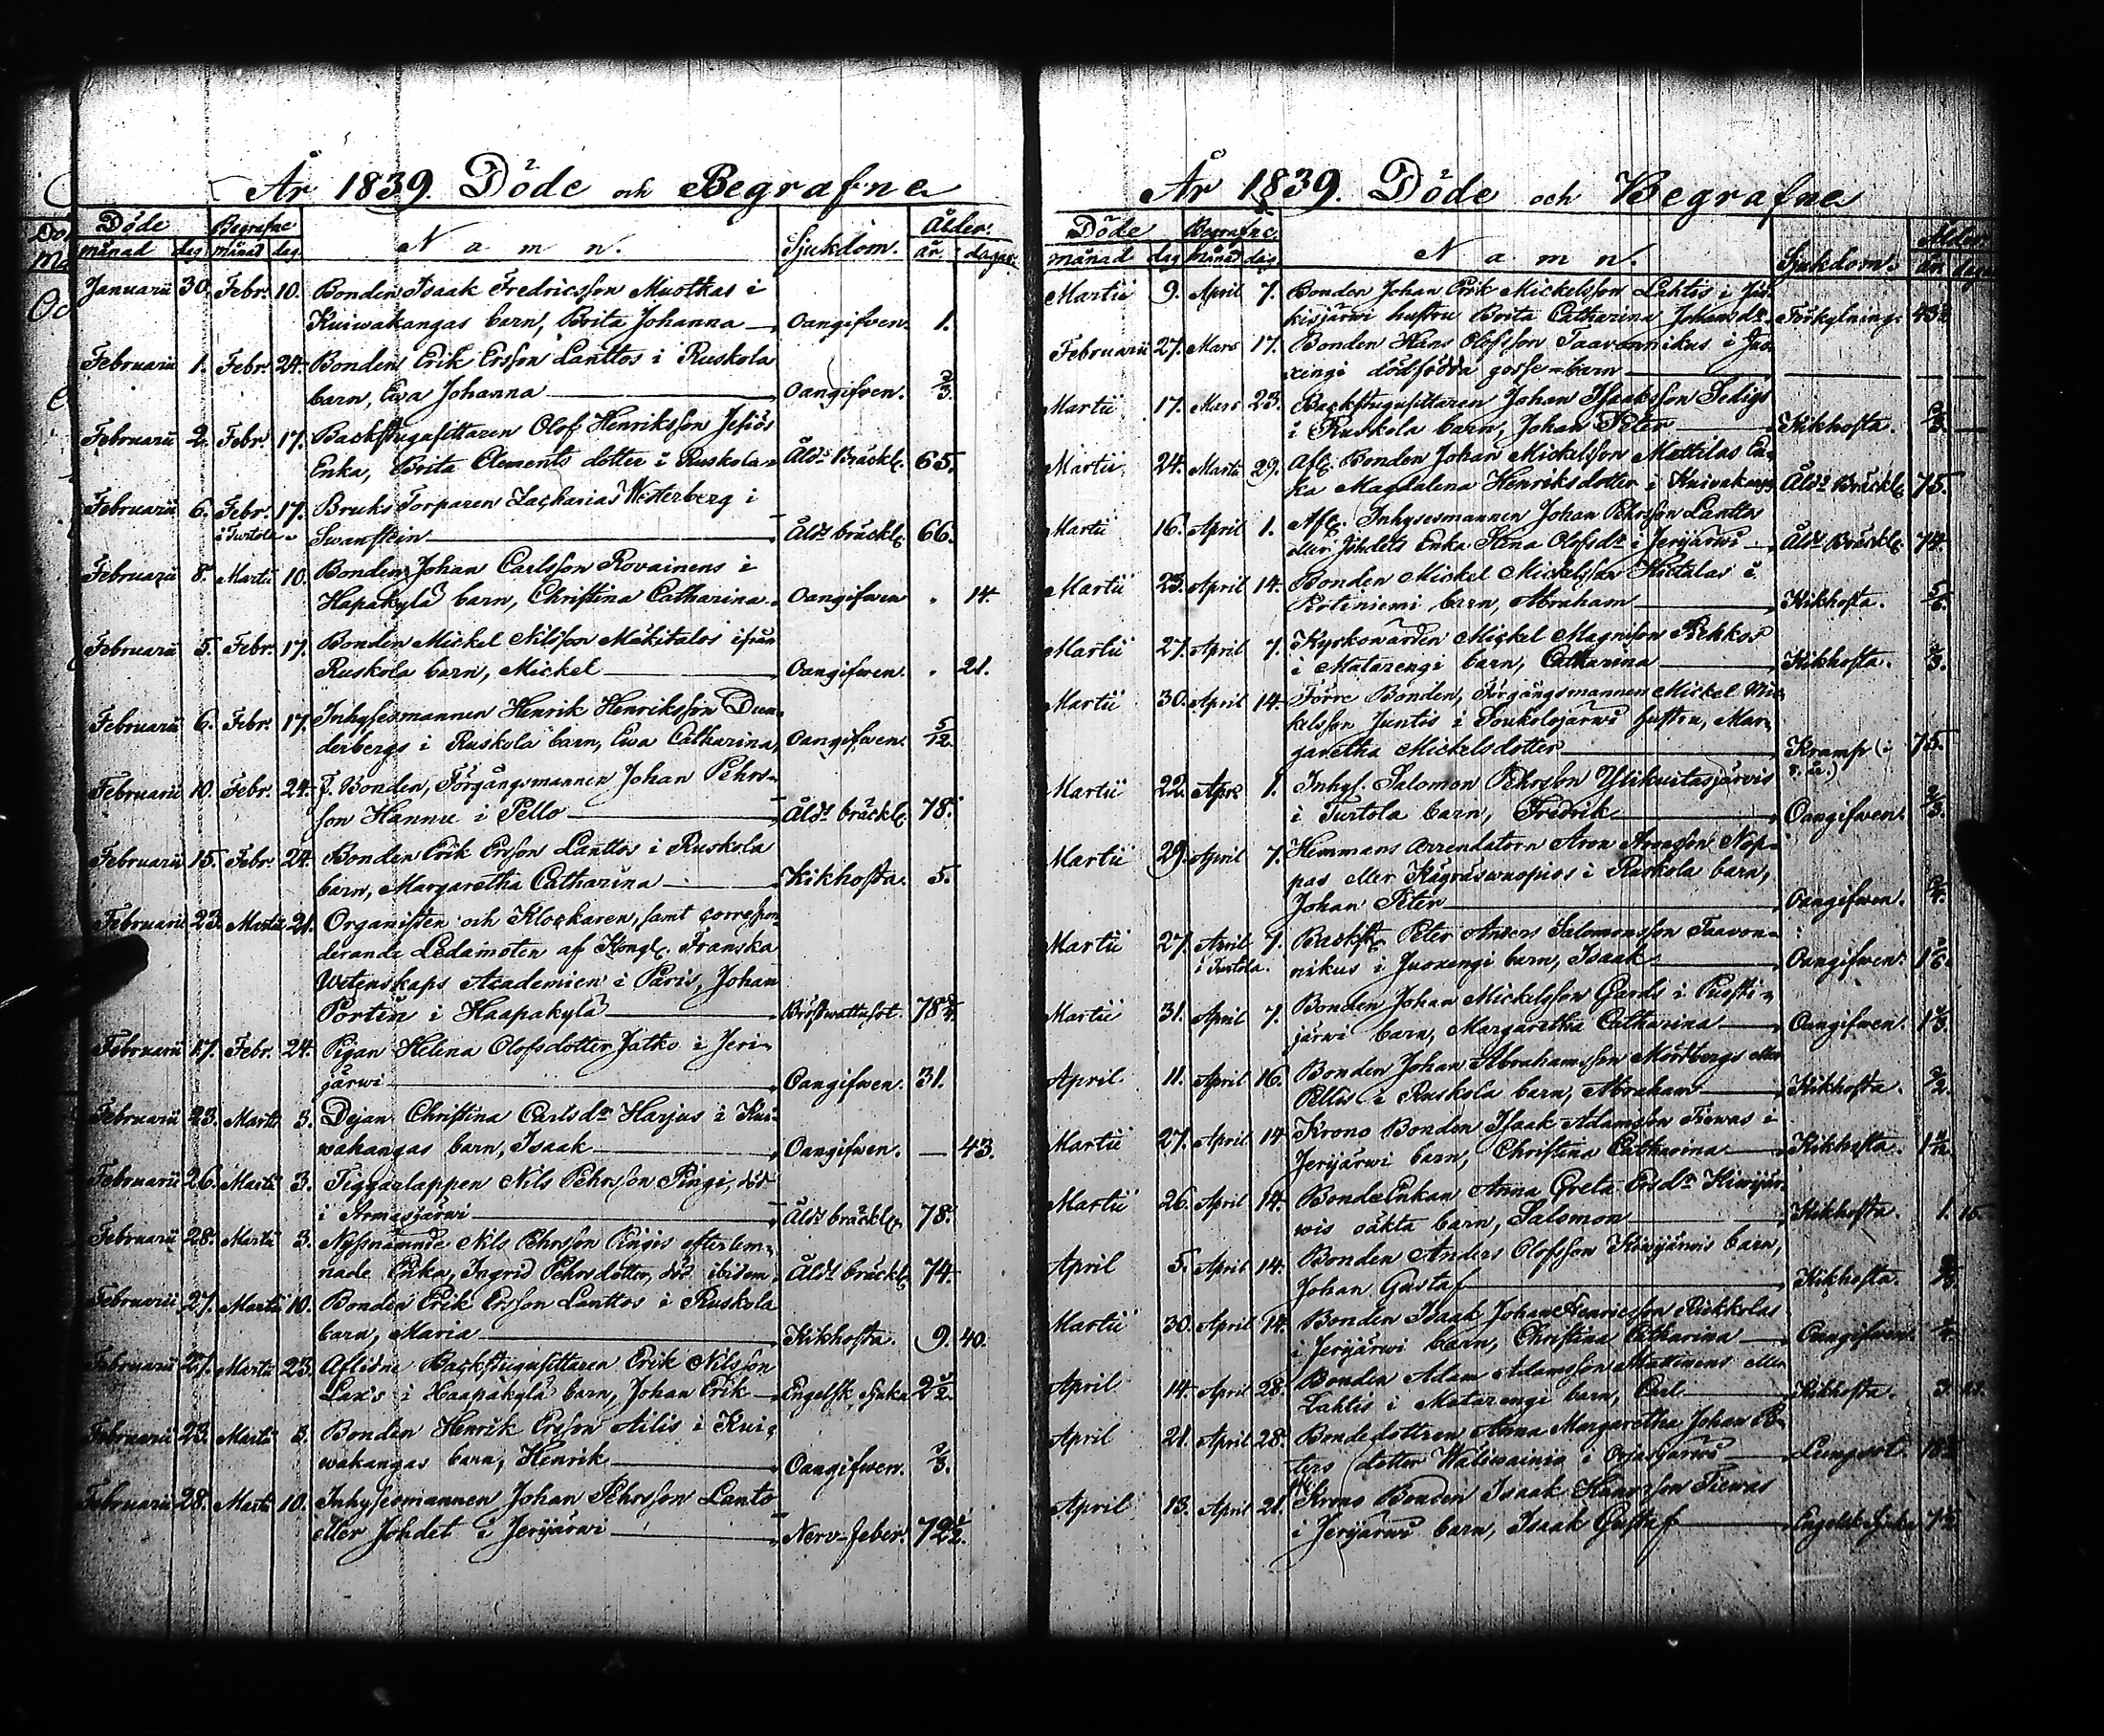 År 1839. Döde och Begrafne
Döde Begrafne Namn. Sjukdom. Ålder.
månad dag månad dag år. dagar.
Januarii 30. Febr. 10. Bonden Isaak Fredricsson Muotkas i
Kuiwakangas barn, Brita Johanna Oangifven. 1.
Februarii 1. Febr. 24. Bonden Erik Ersson Lanttos i Ruskola
barn, Ewa Johanna Oangifven. 2/3.
Februarii 2. Febr. 17. Backstugusittaren Olof Henriksson Jesiös
Enka, Brita Clements dotter i Ruskola Åldr Bräckl. 65.
Februarii 6. Febr. 17. Bruks Torparen Zacharias Westerberg i
i Turtola Swanstein Åldr bräckl. 66.
Februarii 8. Martii 10. Bonden Johan Carlsson Rovainens i
Hapakylä barn, Christina Catharina. Oangifwen . 14.
Februarii 5. Febr. 17. Bonden Mickel Nilsson Mäkitalos ifrån
Ruskola barn, Mickel Oangifwen. . 21.
Februarii 6. Febr. 17. Inhysesmannen Henrik Henriksson Dun
derbergs i Ruskola barn, Ewa Catharina, Oangifwen. 5/12.
Februarii 10. Febr. 24. F. Bonden, Förgångsmannen Johan Pehrs
son Hannu i Pello Åldr bräckl. 78.
Februarii 15. Febr. 24. Bonden Erik Ersson Lanttos i Ruskola
barn, Margaretha Catharina Kikhosta. 5.
Februarii 23. Martii 21. Organisten och Klockaren, samt correspon
derande Ledamoten af Kongl. Franska
Wetenskaps Academien i Paris, Johan
Portin i Haapakylä Bröstwattusot. 78
Februarii 17. Febr. 24. Pigan Helena Olofsdotter Jatko i Jeri
järwi Oangifwen. 31.
Februarii 23. Martii 3. Dejan Christina Carlsdr Harjus i Kui
wakangas barn, Isaak Oangifwen. — 43.
Februarii 26. Martii 3. Tiggarlappen Nils Pehrsson Pingi, död
i Armasjärwi Åldr bräckl. 78.
Februarii 28. Martii 3. Nyssnämnde Nils Pehrsson Pingis efterlem
nade Enka, Ingrid Pehrsdotter, död ibidem, Åldr bräckl. 74.
Februarii 27. Martii 10. Bonden Erik Ersson Lanttos i Ruskola
barn, Maria Kikhosta. 9. 40.
Februarii 27. Martii 23. Aflidne Backstugusittaren Erik Nilsson
Lax's i Haapakylä barn, Johan Erik Engelsk sjuka 2 1/2
Februarii 23. Martii 3. Bonden Henrik Ersson Ailis i Kui
wakangas barn, Henrik Oangifwen. 2/3.
Februarii 28. Martii 10. Inhysesmannen Johan Pehrsson Lanto
eller Johdet i Jerijärwi Nerv-feber. 72 1/2.
År 1839. Döde och Begrafne
Döde Begrafne. Namn. Sjukdom. Ålder
månad dag månad dag år.
Martii 9. April 7. Bonden Johan Erik Mickelsson Lahtis i Jun
kisjärwi hustru Brita Catharina Johansdr. Förkylning.
Februarii 27. Mars 17. Bonden Hans Olofsson Taavonnikus i Juo
xengi dödfödda gosse-barn
Martii 17. Mars 23. Backstugusittaren Johan Isaaksson Sedigs
i Ruskola barn, Johan Peter Kikhosta.
Martii 24. Martii 29. Afl. Bonden Johan Mickelsson Mattilas En
ka Magdalena Henriksdotter i Kuivakangas Åldr Bräckl. 75.
Martii 16. April 1. Afl. Inhysesmannen Johan Pehrsson Lantto
eller Johdets Enka Stina Olofsdr i Jerijärwi Åldr Bräckl. 74.
Martii 23. April 14. Bonden Mickel Mickelsson Hietalas i
Portiniemi barn, Abraham Kikhosta. 5/6.
Martii 27. April 7. Kyrkowärden Mickel Magnisson Pekkos
i Matarengi barn, Catharina Kikhosta.
Martii 30. April 14. Förre Bonden, Förgångsmannen Mickel Mic
kelsson Juntis i Soukolojärwi hustru, Mar
garetha Mickelsdotter Kramp 75.
Martii 22. Apr. 1. Inhys. Salomon Pehrsson Ylikuitasjärvis
i Turtola barn, Fredrik Oangifwen.
Martii 29. April 7. Hemmans arrendatorn Aron Aronsson Nop
pas eller i Ruskola barn,
Johan Peter Oangifwen.
Martii 27. April 7. Backst. Peter Anders Salomonsson Taavon
i Turtola. nikus i Juoxengi barn, Isaak Oangifwen.
Martii 31. April 7. Bonden Johan Mickelsson Gards i Puosti
järwi barn, Margaretha Catharina Oangifwen.
April 11. April 16. Bonden Johan Abrahamsson Mortbergs eller
Pellis i Ruskola barn, Abraham Kikhosta. 1/2.
Martii 27. April 14 Krono Bonden Isaak Adamsson Tiewas i
Jerijärwi barn, Christina Catharina Kikhosta.
Martii 26. April 14. BondeEnkan Anna Greta Ersdr Kiwijär
wis oäkta barn, Salomon Kikhosta 1. 15.
April 5. April 14. Bonden Anders Olofsson Kiwijärvis barn,
Johan Gustaf Kikhosta.
Martii 30. April 14. Bonden Isaak Johan Henricsson Riekkolas
i Jerijärwi barn, Christina Catharina Oangifwen.
April 14. April 28. Bonden Adam Adamsson Mattinens eller
Lahtis i Matarengi barn, Carl Kikhosta. 3
April 21. April 28. Bondedottren Anna Margaretha Johan Pe
ters dotter Wäliwainio i Orjasjärwi Lungsot.
April 13. April 21. Krono Bonden Isaak Hansson Tiewas
i Jerijärwi barn, Isaak Gustaf Engelsk Sjuka